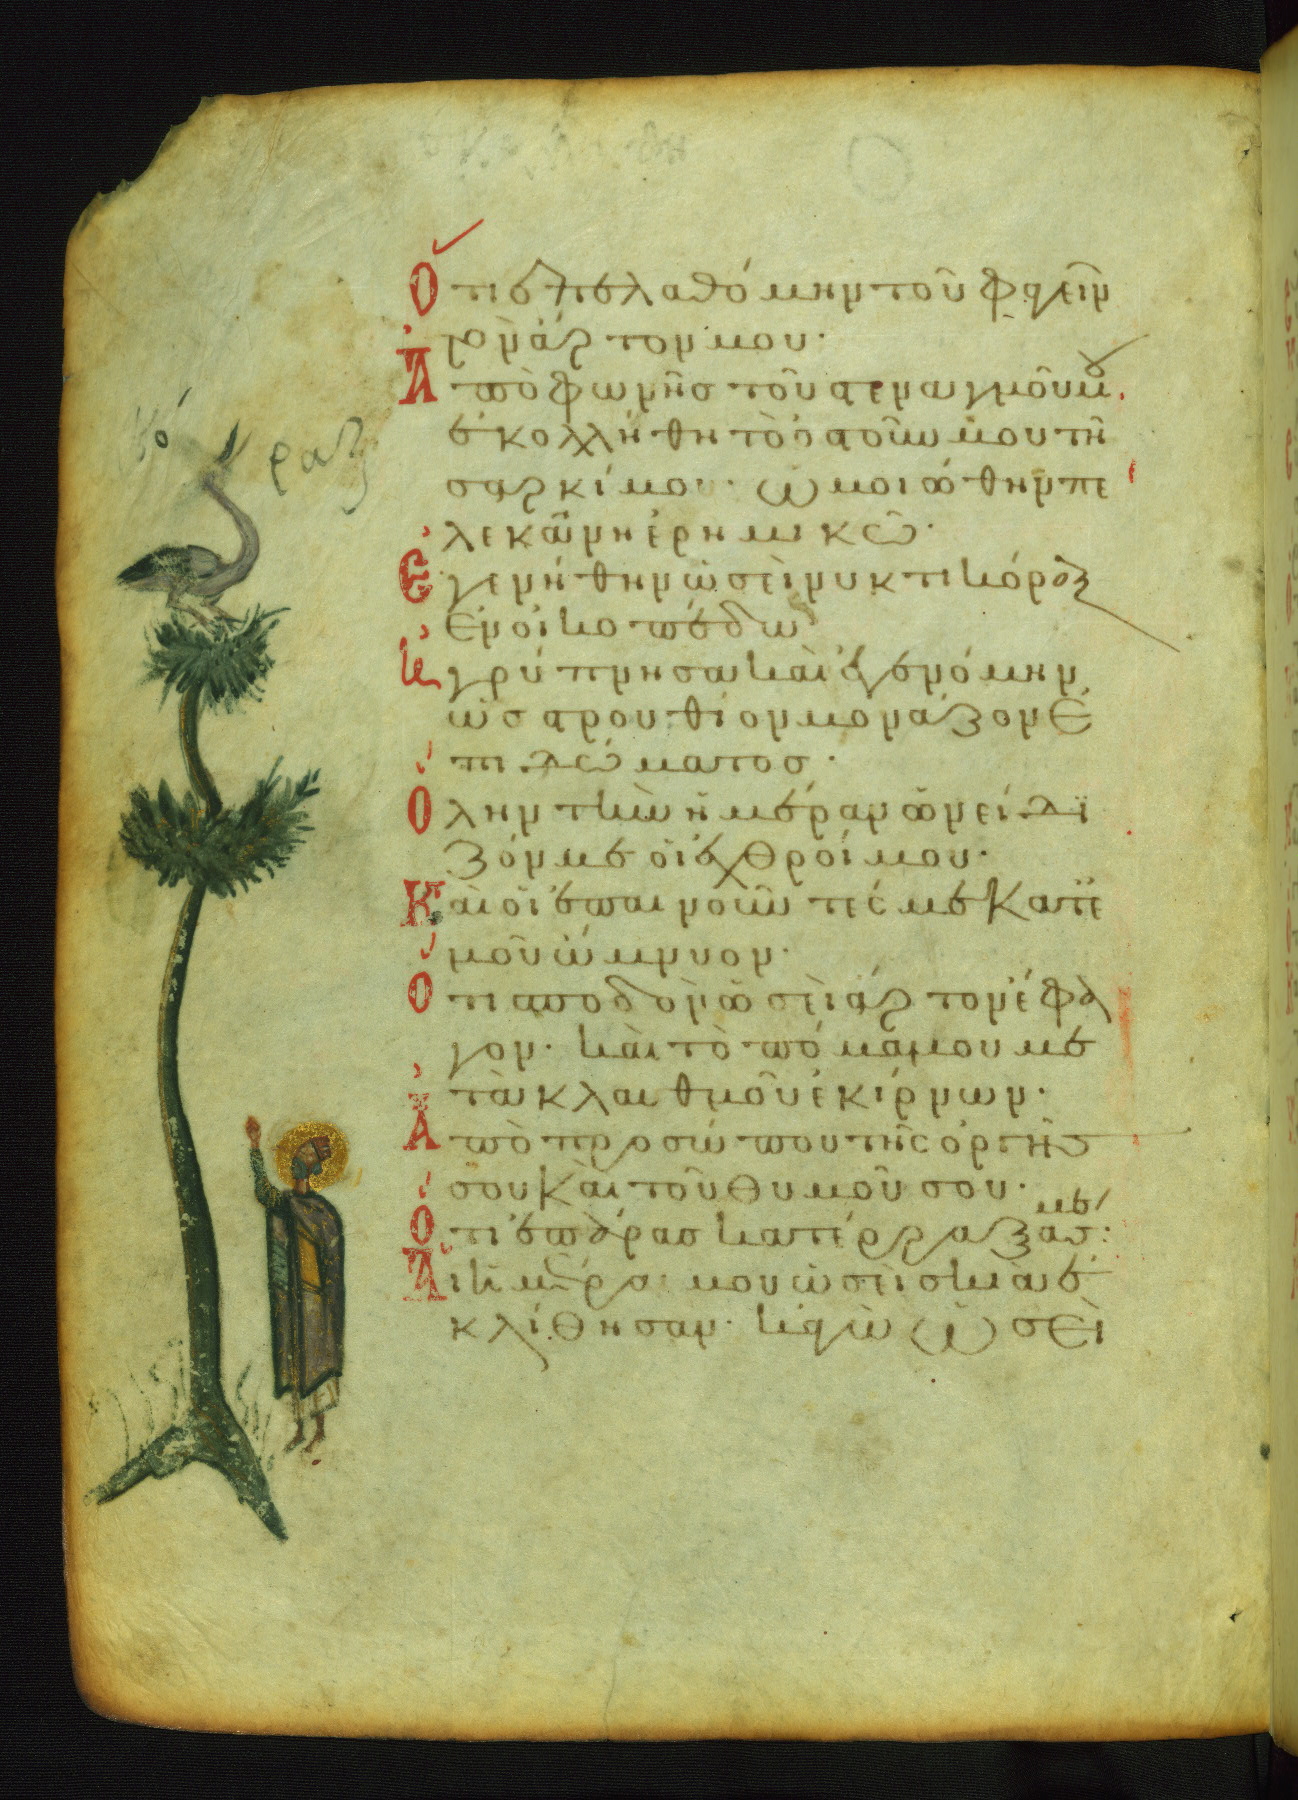 Ὅτι ἐπελαθόμην τοῦ φαγεῖν
τὸν ἄρτον μου·
Ἀπὸ φωνῆς τοῦ στεναγμοῦ μου
ἐκολλήθη τὸ ὀστοῦν μου τῆ
σαρκί μου· ὡμοιώθην πε
λεκᾶνι ἐρημικῶ·
Ἐγενήθην ὡσεὶ νυκτικόραξ
ἐν οἰκοπέδω
Ἠγρύπνησα καὶ ἐγενόμην
ὡς στρουθίον μονάζον ἐ
πὶ δώματος·
Ὅλην τὴν ἡμέραν ὠνείδι
ζόν με οἱ ἐχθροί μου·
Καὶ οἱ ἐπαινοῦντές με κατ' ἐ
μοῦ ὤμνυον·
Ὅτι σποδὸν ὡσεὶ ἄρτον ἔφα
γον· καὶ τὸ πόμα μου με
τὰ κλαυθμοῦ ἐκίρνων·
Ἀπὸ προσώπου τῆς ὀργῆς
σου καὶ τοῦ θυμοῦ σου·
Ὅτι ἐπάρας κατέρραξάς με:
Αἱ ἡμέραι μου ὡσεὶ σκιὰ ἐ
κλίθησαν· κἀγὼ ὡσεὶ
κόραξ